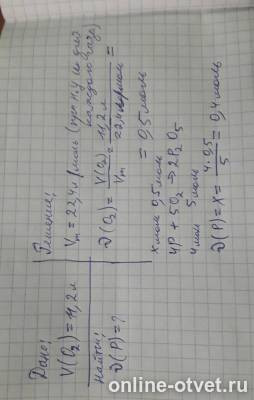 Дано:
V(O₂) = 11,2 л
Найти:
ν(P) = ?
Решение:
Vm = 22,4 л/моль (при н.у для
каждого газа)
ν(O₂) = V(O₂)/Vm = 11,2 л/22,4 л/моль =
= 0,5 моль
x моль 0,5 моль
4P + 5O₂ → 2P₂O₅
4 моль 5 моль
ν(P) = x = 4·0,5/5 = 0,4 моль
online-otvet.ru